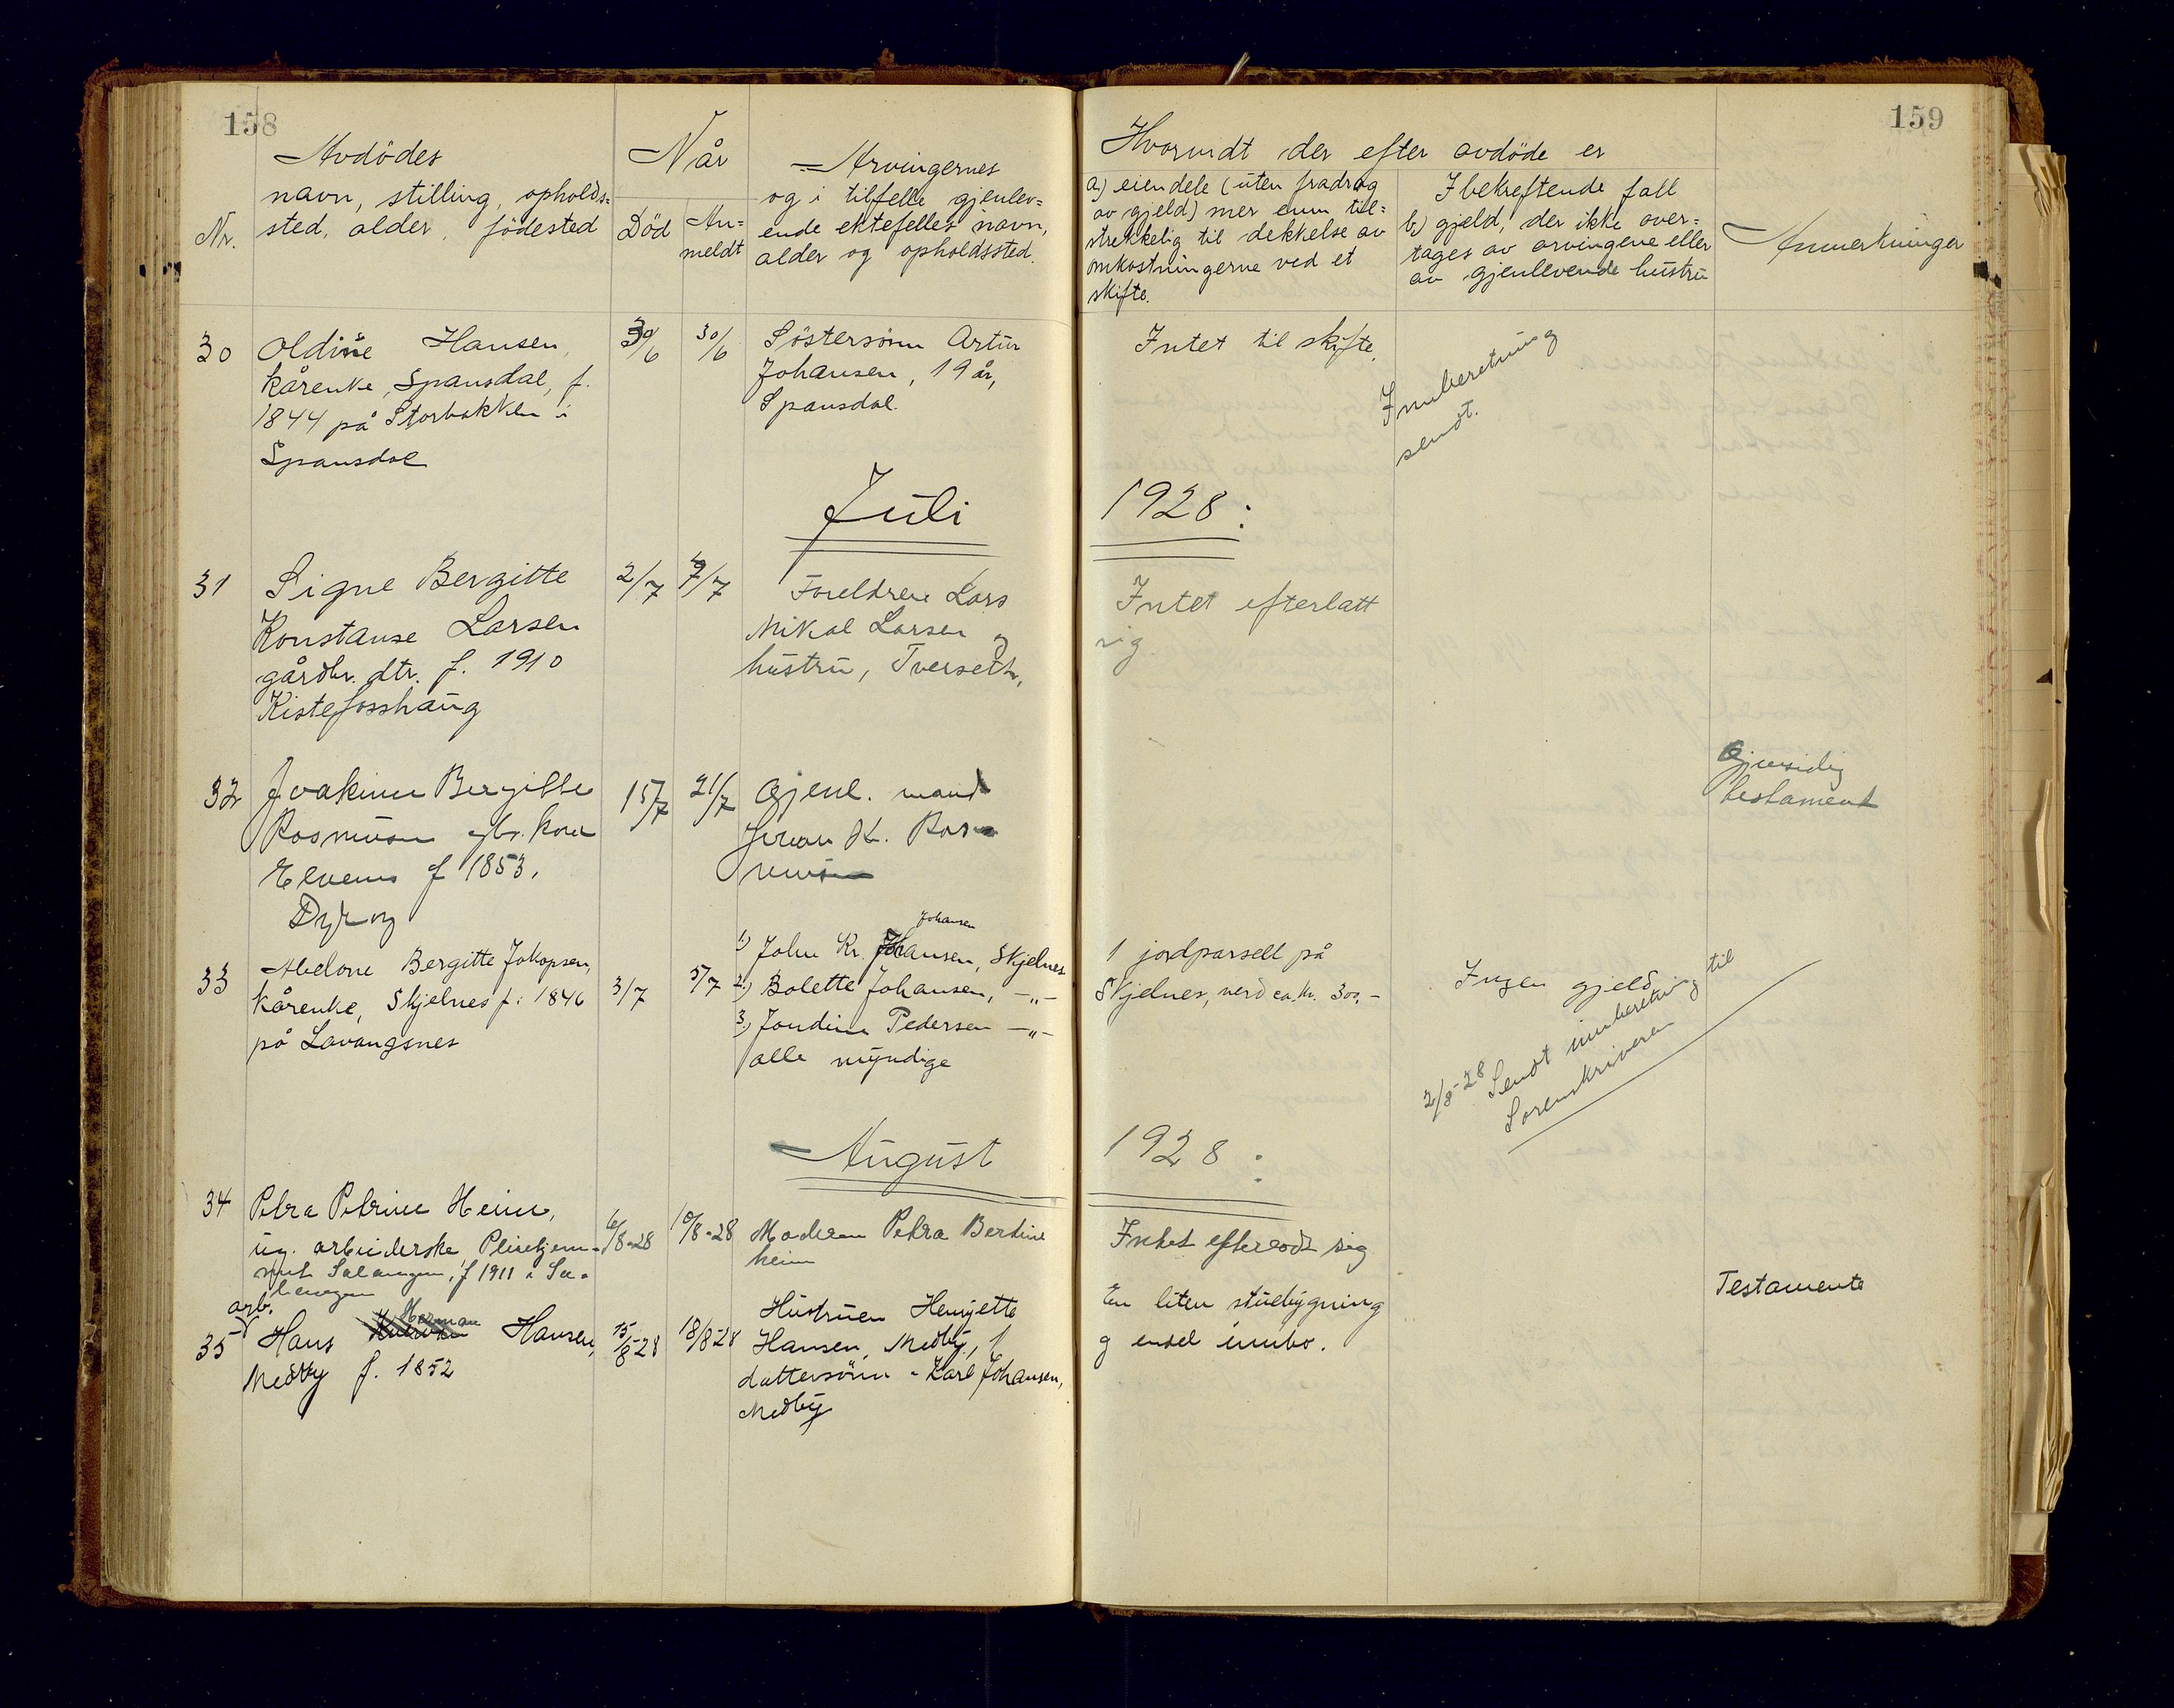 158
Nr.
Avdödes
navn, stilling, opholds=
sted, alder, födested
Når
Död
An=
meldt
Arvingernes
og i tilfelle gjenlev=
ende ektefelles navn,
alder og opholdssted.
30
Oldine Hansen,
kårenke, Spansdal, f.
1844 på Storbakken i
Spansdal
30/6
30/6
Söstersönn Artur
Johansen, 19 år,
Spansdal.
Juli
31
Signe Bergitte
Konstanse Larsen
gårdbr. dtr. f. 1910
Kistefosshaug
2/7
7/7
Foreldrene Lars
Mikal Larsen og
hustru,
32
Joakime Bergitte
Rasmusen
Elvenes f 1853.
Dyröy
15/7
21/7
Gjenl. mand
K. Ras-
musen
33
Abelone Bergitte Jakopsen,
kårenke, Skjelnes f. 1846
på Lavangsnes
3/7
5/7
1) John Kr. Johansen, Skjelnes
Johansen
2) Bolette Johansen, -"-
3) Jondine Pedersen -"-
alle myndige
August
34
Petra Petrine Heim,
ug. arbeiderske Pleiehjem-
met Salangen, f 1911 i Sa-
langen
6/8-28
10/8-28
Moderen Petra Bertine
heim
35
arb.
Hans Herman Hansen,
Medby f. 1852
15/8-28
18/8-28
Hustruen Henjette
Hansen, Medby,
dattersönn - Karl Johansen,
Medby
159
Hvorvidt der efter avdöde er
a) eiendele (uten fradrag
av gjeld) mer enn til=
strekkelig til dekkelse av
omkostningerne ved et
skifte.
I bekreftende fall
b) gjeld, der ikke over=
tages av arvingene eller
av gjenlevende hustru
Anmerkninger
Intet til skifte.
Innberetning
sendt.
1928:
Intet efterlatt
sig
Gjensidig
testament
1 jordparsell på
Skjelnes, verd ca. kr. 300,-
Ingen gjeld
2/8-28 Sendt innberetning til
Sorenskriveren
1928:
Intet efterlodt sig
En liten stuebygning
og endel innbo.
Testamente